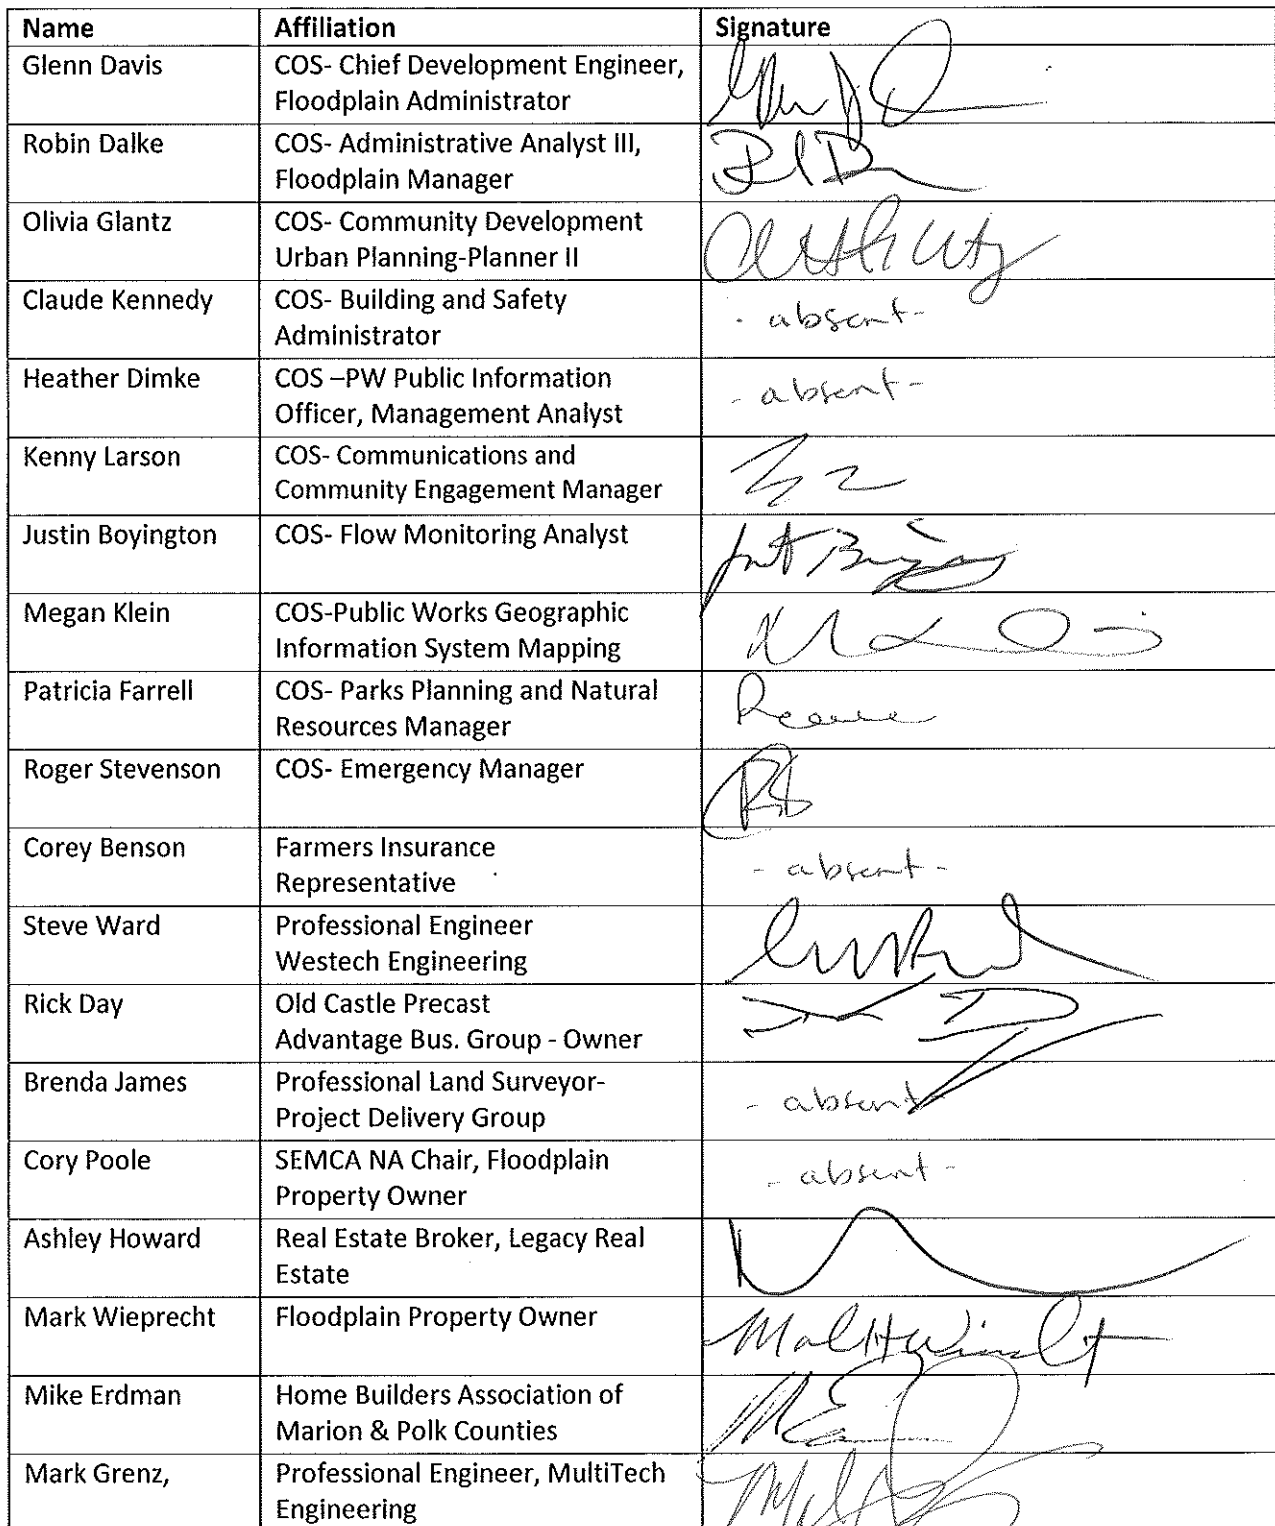 Name Affiliation Signature
Glenn Davis COS- Chief Development Engineer,
Floodplain Administrator
Robin Dalke COS- Administrative Analyst III,
Floodplain Manager
Olivia Glantz COS- Community Development
Urban Planning-Planner II
Claude Kennedy COS- Building and Safety - absent-
Administrator
Heather Dimke COS –PW Public Information - absent-
Officer, Management Analyst
Kenny Larson COS- Communications and
Community Engagement Manager
Justin Boyington COS- Flow Monitoring Analyst
Megan Klein COS-Public Works Geographic
Information System Mapping
Patricia Farrell COS- Parks Planning and Natural
Resources Manager
Roger Stevenson COS- Emergency Manager
Corey Benson Farmers Insurance - absent-
Representative
Steve Ward Professional Engineer
Westech Engineering
Rick Day Old Castle Precast
Advantage Bus. Group - Owner
Brenda James Professional Land Surveyor- - absent
Project Delivery Group
Cory Poole SEMCA NA Chair, Floodplain - absent-
Property Owner
Ashley Howard Real Estate Broker, Legacy Real
Estate
Mark Wieprecht Floodplain Property Owner
Mike Erdman Home Builders Association of
Marion & Polk Counties
Mark Grenz, Professional Engineer, MultiTech
Engineering